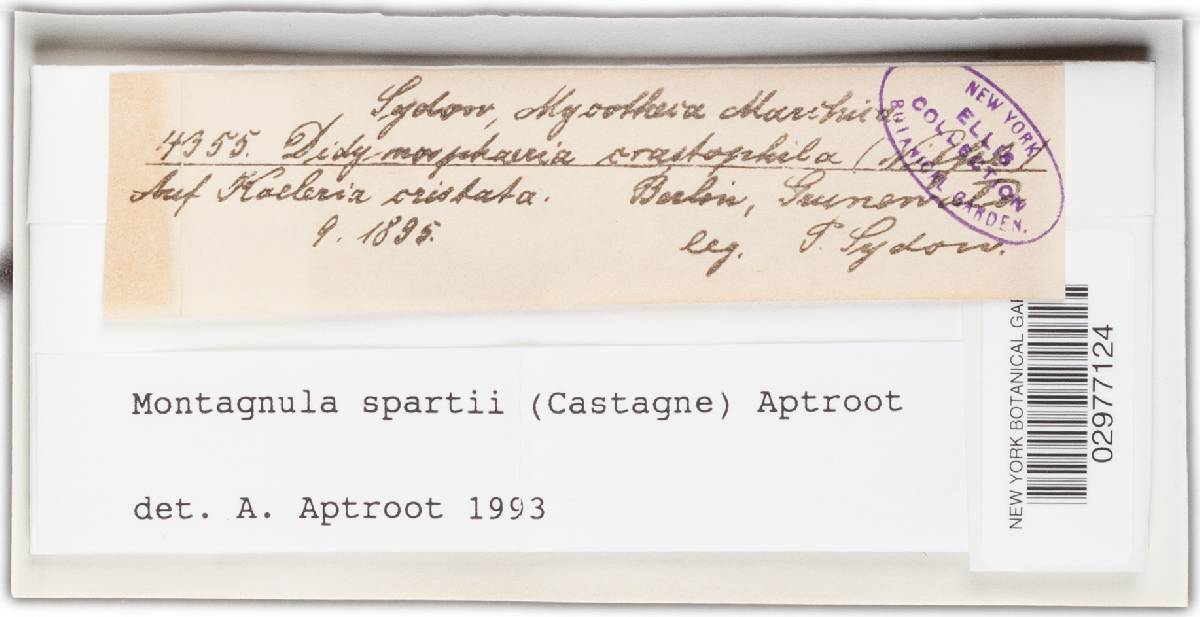 Sydow, Mycotheca Marchica
4355. Didymosphaeria crastophila (Niessl)
Auf Koeleria cristata. Berlin, Grunewald
9. 1895. leg. P. Sydow.
NEW YORK
ELLIS
COLLECTION
BOTANICAL GARDEN.
Montagnula spartii (Castagne) Aptroot
det. A. Aptroot 1993
NEW YORK BOTANICAL GAR
02977124